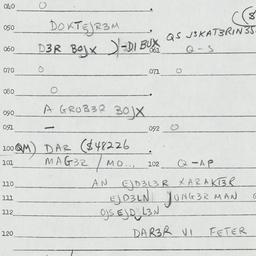 040 O
050 DOKTEJR3M
060 D3R BOJX )-DI BUX 061 Q-S
QS J3KAT3RIN3S
070 O 071 O
080 O
090 A GROB3R BOJX
091 — 092 O
100 QM) DAR ($48226
101 MAG3R / MO... 102 Q-AP
110 AN EJD3L3R XARAKT3R
111 EJD3LN JUNG3R MAN
112 OJSEJD L3N
120 DAR3R VI FETER